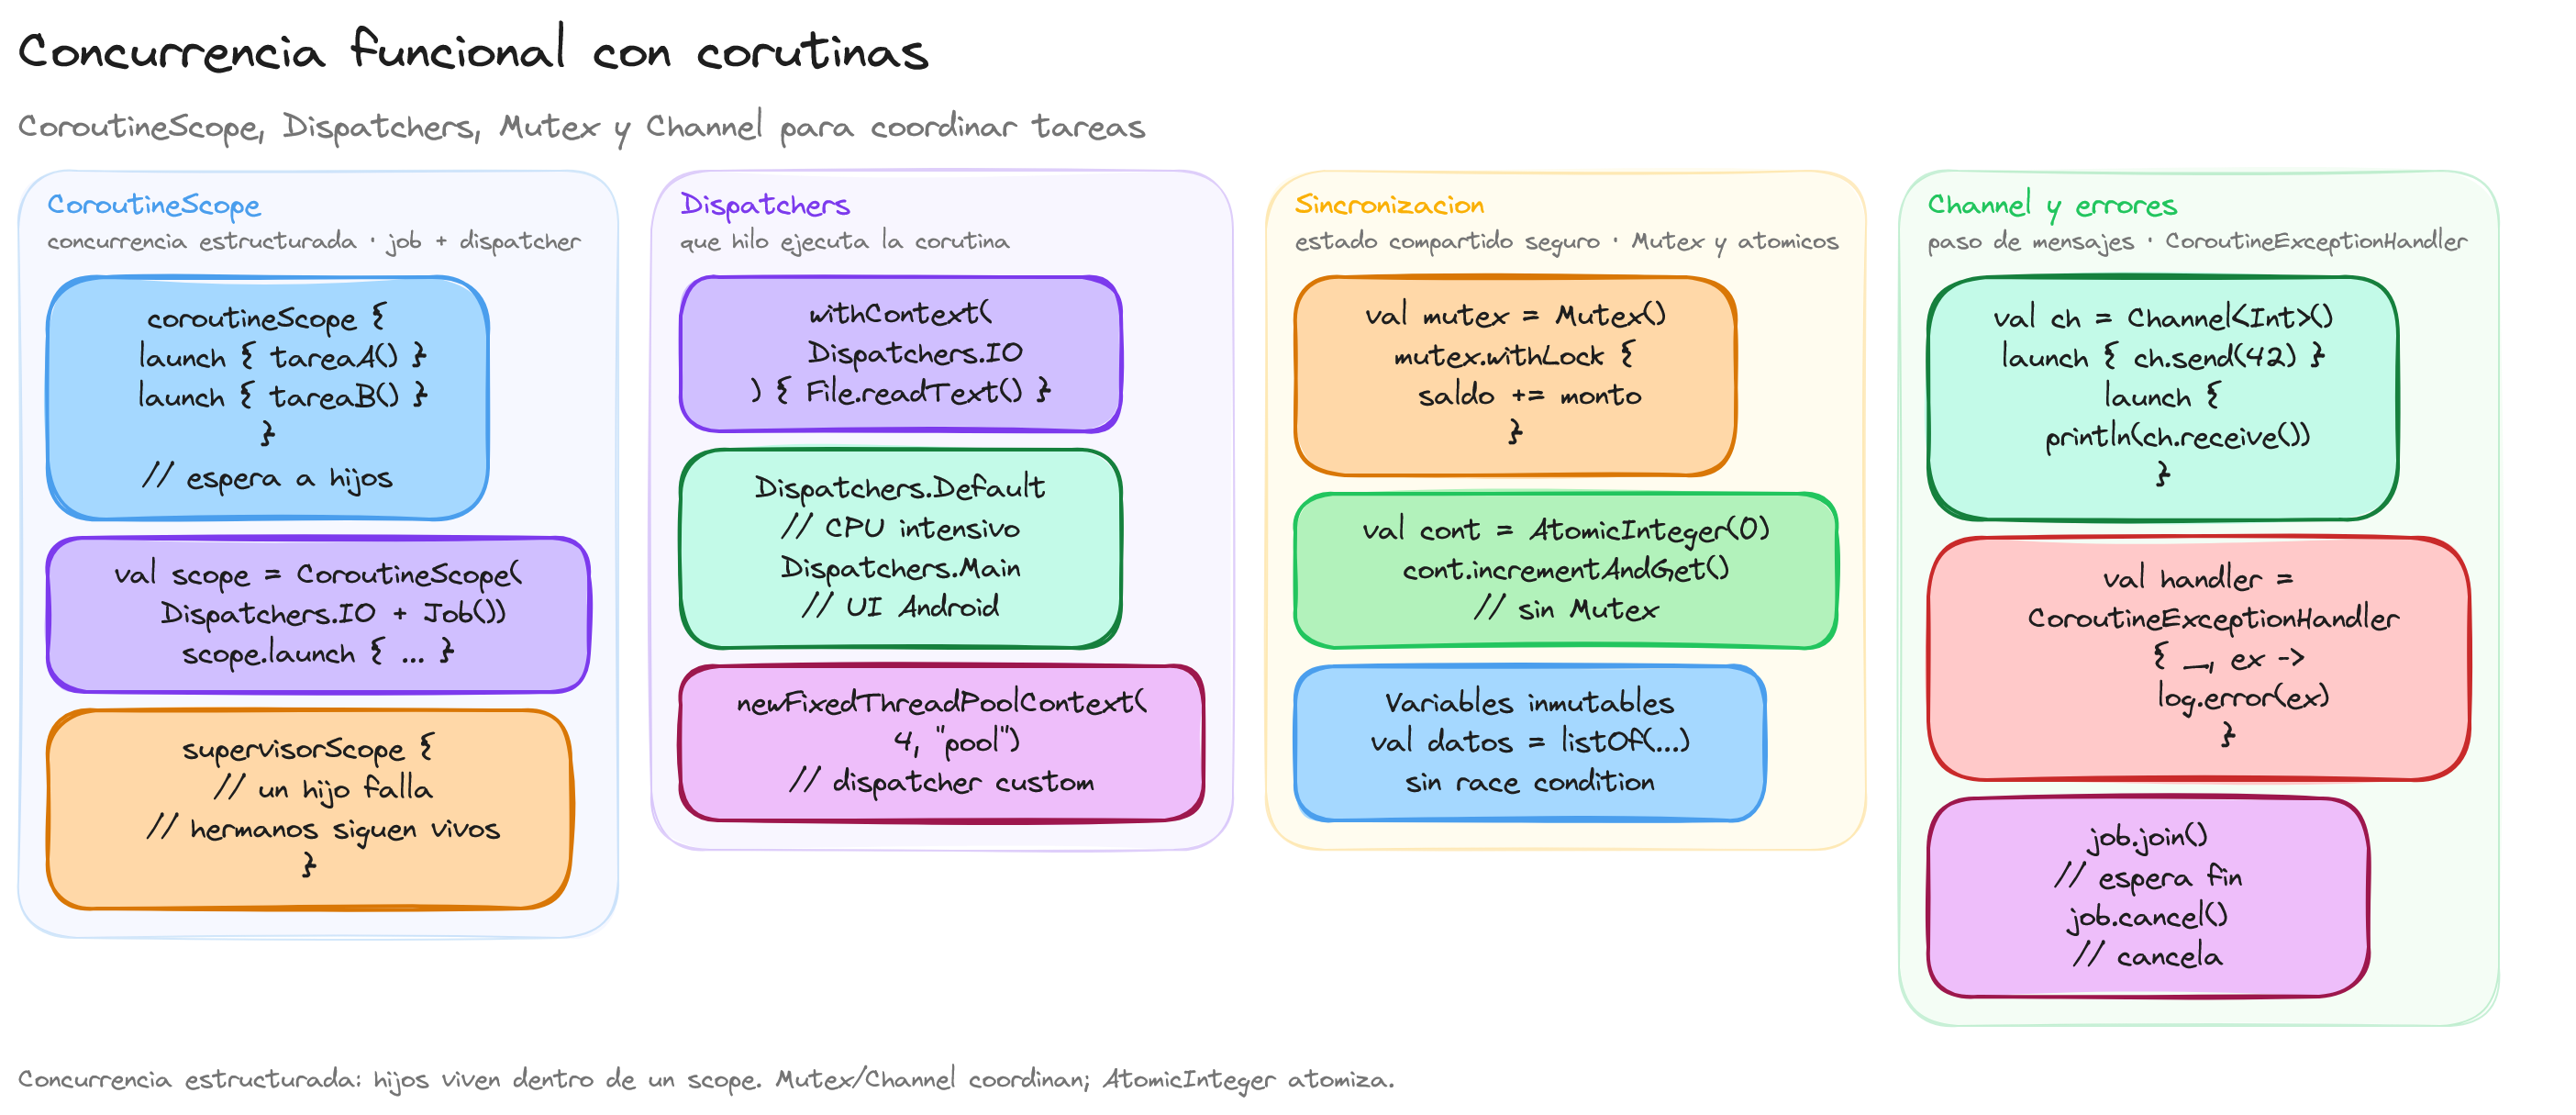 Concurrencia funcional con corutinas
CoroutineScope, Dispatchers, Mutex y Channel para coordinar tareas
CoroutineScope
concurrencia estructurada · job + dispatcher
coroutineScope {
launch { tareaA() }
launch { tareaB() }
}
// espera a hijos
val scope = CoroutineScope(
Dispatchers.IO + Job())
scope.launch { ... }
supervisorScope {
// un hijo falla
// hermanos siguen vivos
}
Dispatchers
que hilo ejecuta la corutina
withContext(
Dispatchers.IO
) { File.readText() }
Dispatchers.Default
// CPU intensivo
Dispatchers.Main
// UI Android
newFixedThreadPoolContext(
4, "pool")
// dispatcher custom
Sincronizacion
estado compartido seguro · Mutex y atomicos
val mutex = Mutex()
mutex.withLock {
saldo += monto
}
val cont = AtomicInteger(0)
cont.incrementAndGet()
// sin Mutex
Variables inmutables
val datos = listOf(...)
sin race condition
Channel y errores
paso de mensajes · CoroutineExceptionHandler
val ch = Channel<Int>()
launch { ch.send(42) }
launch {
println(ch.receive())
}
val handler =
CoroutineExceptionHandler
{ _, ex ->
log.error(ex)
}
job.join()
// espera fin
job.cancel()
// cancela
Concurrencia estructurada: hijos viven dentro de un scope. Mutex/Channel coordinan; AtomicInteger atomiza.